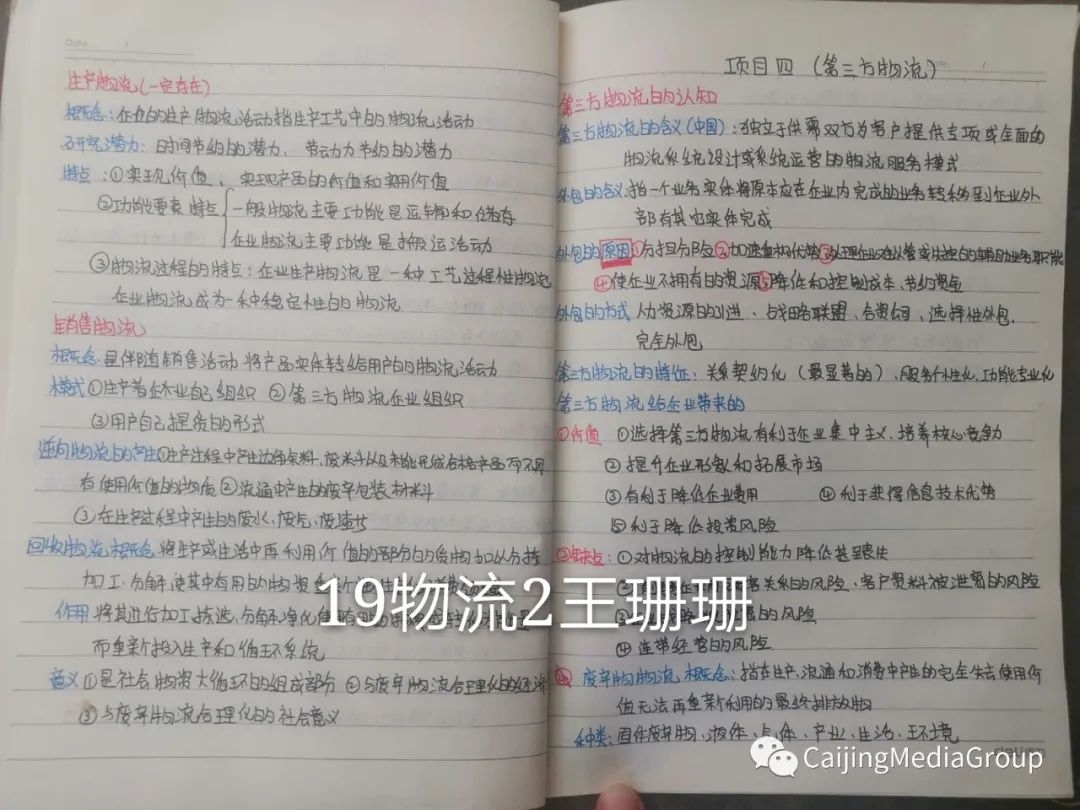 生产物流(一定存在)
概念:企业的生产物流活动指生产工艺中的物流活动
研究潜力:时间节约的潜力、劳动力节约的潜力
特点:①实现价值、实现产品的价值和实用价值
②功能要素特点 一般物流主要功能是运输和储存
企业物流主要功能是搬运活动
③物流过程的特点:企业生产物流是一种工艺过程性物流
企业物流成为一种稳定性的物流
销售物流
概念 是伴随销售活动将产品实体转给用户的物流活动
模式①生产者企业自己组织 ②第三方物流企业组织
③用户自己提货的形式
逆向物流的产生①生产过程中产生边角余料、废料以及未能形成合格产品而不具
有使用价值的物质②流通中产生的废弃包装材料
③在生产过程中产生的废水、废气、废渣
回收物流 概念 将生产或生活中再利用价值的部分的废物加以分拣
加工、分解、使其中有用的物资
作用 将其进行加工拣选、分解净化
而重新投入生产和循环系统
意义①是社会物资大循环的组成部分 ②与废弃物流合理化的经济
③与废弃物流合理化的社会意义
项目四 (第三方物流)
第三方物流的认知
第三方物流的含义(中国):独立于供需双方为客户提供专项或全面的
物流系统设计或系统运营的物流服务模式
外包的含义:指一个业务实体将原本应在企业内完成的业务转移到企业外
部有其他实体完成
外包的原因①分担风险②加速重构优势③处理企业难以管或失控的辅助业务职能
④使企业不拥有的资源⑤降低和控制成本、节约资金
外包的方式 人力资源的引进、战略联盟、合资公司、选择性外包、
完全外包
第三方物流的特征:关系契约化(最显著的)、服务个性化、功能专业化
第三方物流给企业带来的
①价值 ①选择第三方物流有利于企业集中主义、培养核心竞争力
②提升企业形象和拓展市场
③有利于降低企业费用 ④利于获得信息技术优势
⑤利于降低投资风险
②缺点:①对物流的控制能力降低甚至丧失
关系的风险、客户资料被泄露的风险
的风险
④连带经营的风险
废弃物物流 概念:指在生产、流通和消费中产生的完全失去使用价
值无法再重新利用的最终排放物
种类:固体废弃物、液体、气体、产业、生活、环境
19物流2王珊珊
CaijingMediaGroup